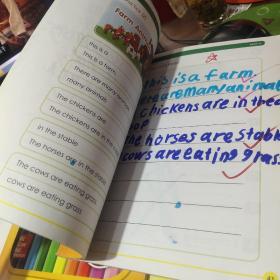 Farm Animals
this is a
This is a farm.
There are many
many animals
The chickens are
The chickens are in the
in the stable
The horses are in the stable.
The cows are eating
cows are eating grass.
this is a farm.
are many animals
chickens are in the
The horses are stable
cows are eating grass.